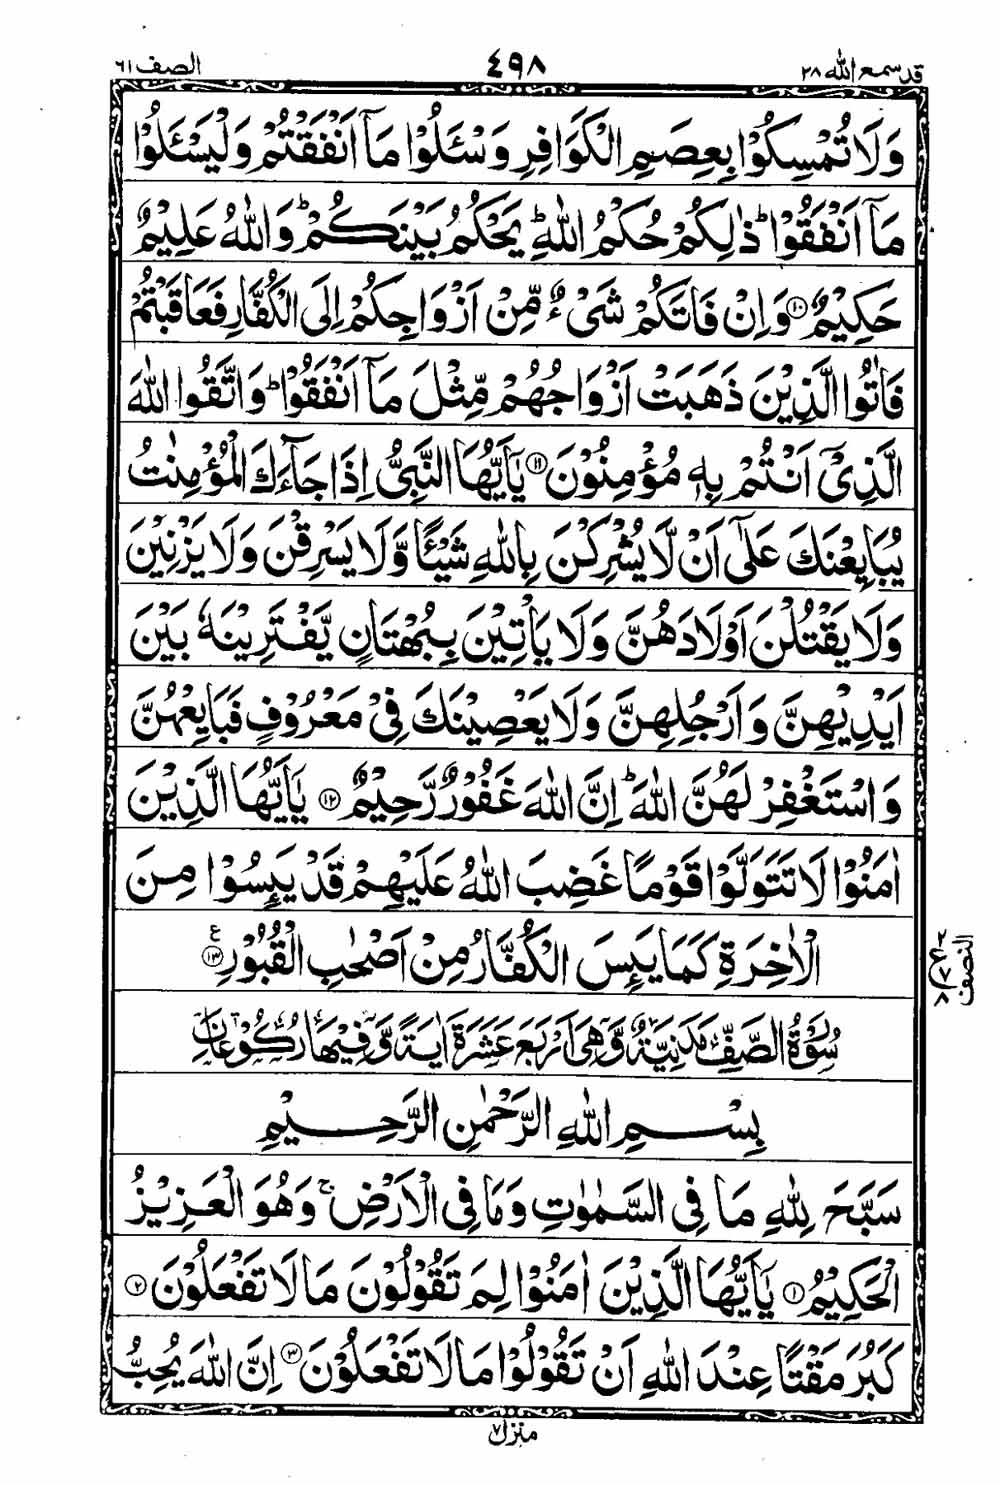 قد سمع الله ٢٨
٤٩٨
الصف ٦١
وَلَا تُمْسِكُوْا بِعِصَمِ الْكَوَافِرِ وَسْـَٔلُوْا مَاۤ اَنْفَقْتُمْ وَلْيَسْـَٔلُوْا
مَاۤ اَنْفَقُوْا ؕ ذٰلِكُمْ حُكْمُ اللّٰهِ ؕ يَحْكُمُ بَيْنَكُمْ ؕ وَاللّٰهُ عَلِيْمٌ
حَكِيْمٌ ⁠۝١٠ وَاِنْ فَاتَكُمْ شَىْءٌ مِّنْ اَزْوَاجِكُمْ اِلَى الْكُفَّارِ فَعَاقَبْتُمْ
فَاٰتُوا الَّذِيْنَ ذَهَبَتْ اَزْوَاجُهُمْ مِّثْلَ مَاۤ اَنْفَقُوْا ؕ وَاتَّقُوا اللّٰهَ
الَّذِىْۤ اَنْتُمْ بِهٖ مُؤْمِنُوْنَ ۝١١ يٰۤاَيُّهَا النَّبِىُّ اِذَا جَآءَكَ الْمُؤْمِنٰتُ
يُبَايِعْنَكَ عَلٰۤى اَنْ لَّا يُشْرِكْنَ بِاللّٰهِ شَيْـًٔا وَّلَا يَسْرِقْنَ وَلَا يَزْنِيْنَ
وَلَا يَقْتُلْنَ اَوْلَادَهُنَّ وَلَا يَاْتِيْنَ بِبُهْتَانٍ يَّفْتَرِيْنَهٗ بَيْنَ
اَيْدِيْهِنَّ وَاَرْجُلِهِنَّ وَلَا يَعْصِيْنَكَ فِىْ مَعْرُوْفٍ فَبَايِعْهُنَّ
وَاسْتَغْفِرْ لَهُنَّ اللّٰهَ ؕ اِنَّ اللّٰهَ غَفُوْرٌ رَّحِيْمٌ ۝١٢ يٰۤاَيُّهَا الَّذِيْنَ
اٰمَنُوْا لَا تَتَوَلَّوْا قَوْمًا غَضِبَ اللّٰهُ عَلَيْهِمْ قَدْ يَئِسُوْا مِنَ
الْاٰخِرَةِ كَمَا يَئِسَ الْكُفَّارُ مِنْ اَصْحٰبِ الْقُبُوْرِ ۝١٣ ع
النصف
٢
ع
٧
٨
سُوْرَةُ الصَّفِّ مَدَنِيَّةٌ وَّهِىَ اَرْبَعَ عَشَرَةَ اٰيَةً وَّفِيْهَا رُكُوْعَانِ
بِسْمِ اللّٰهِ الرَّحْمٰنِ الرَّحِيْمِ
سَبَّحَ لِلّٰهِ مَا فِى السَّمٰوٰتِ وَمَا فِى الْاَرْضِ ۚ وَهُوَ الْعَزِيْزُ
الْحَكِيْمُ ۝١ يٰۤاَيُّهَا الَّذِيْنَ اٰمَنُوْا لِمَ تَقُوْلُوْنَ مَا لَا تَفْعَلُوْنَ ۝٢
كَبُرَ مَقْتًا عِنْدَ اللّٰهِ اَنْ تَقُوْلُوْا مَا لَا تَفْعَلُوْنَ ۝٣ اِنَّ اللّٰهَ يُحِبُّ
منزل ٧